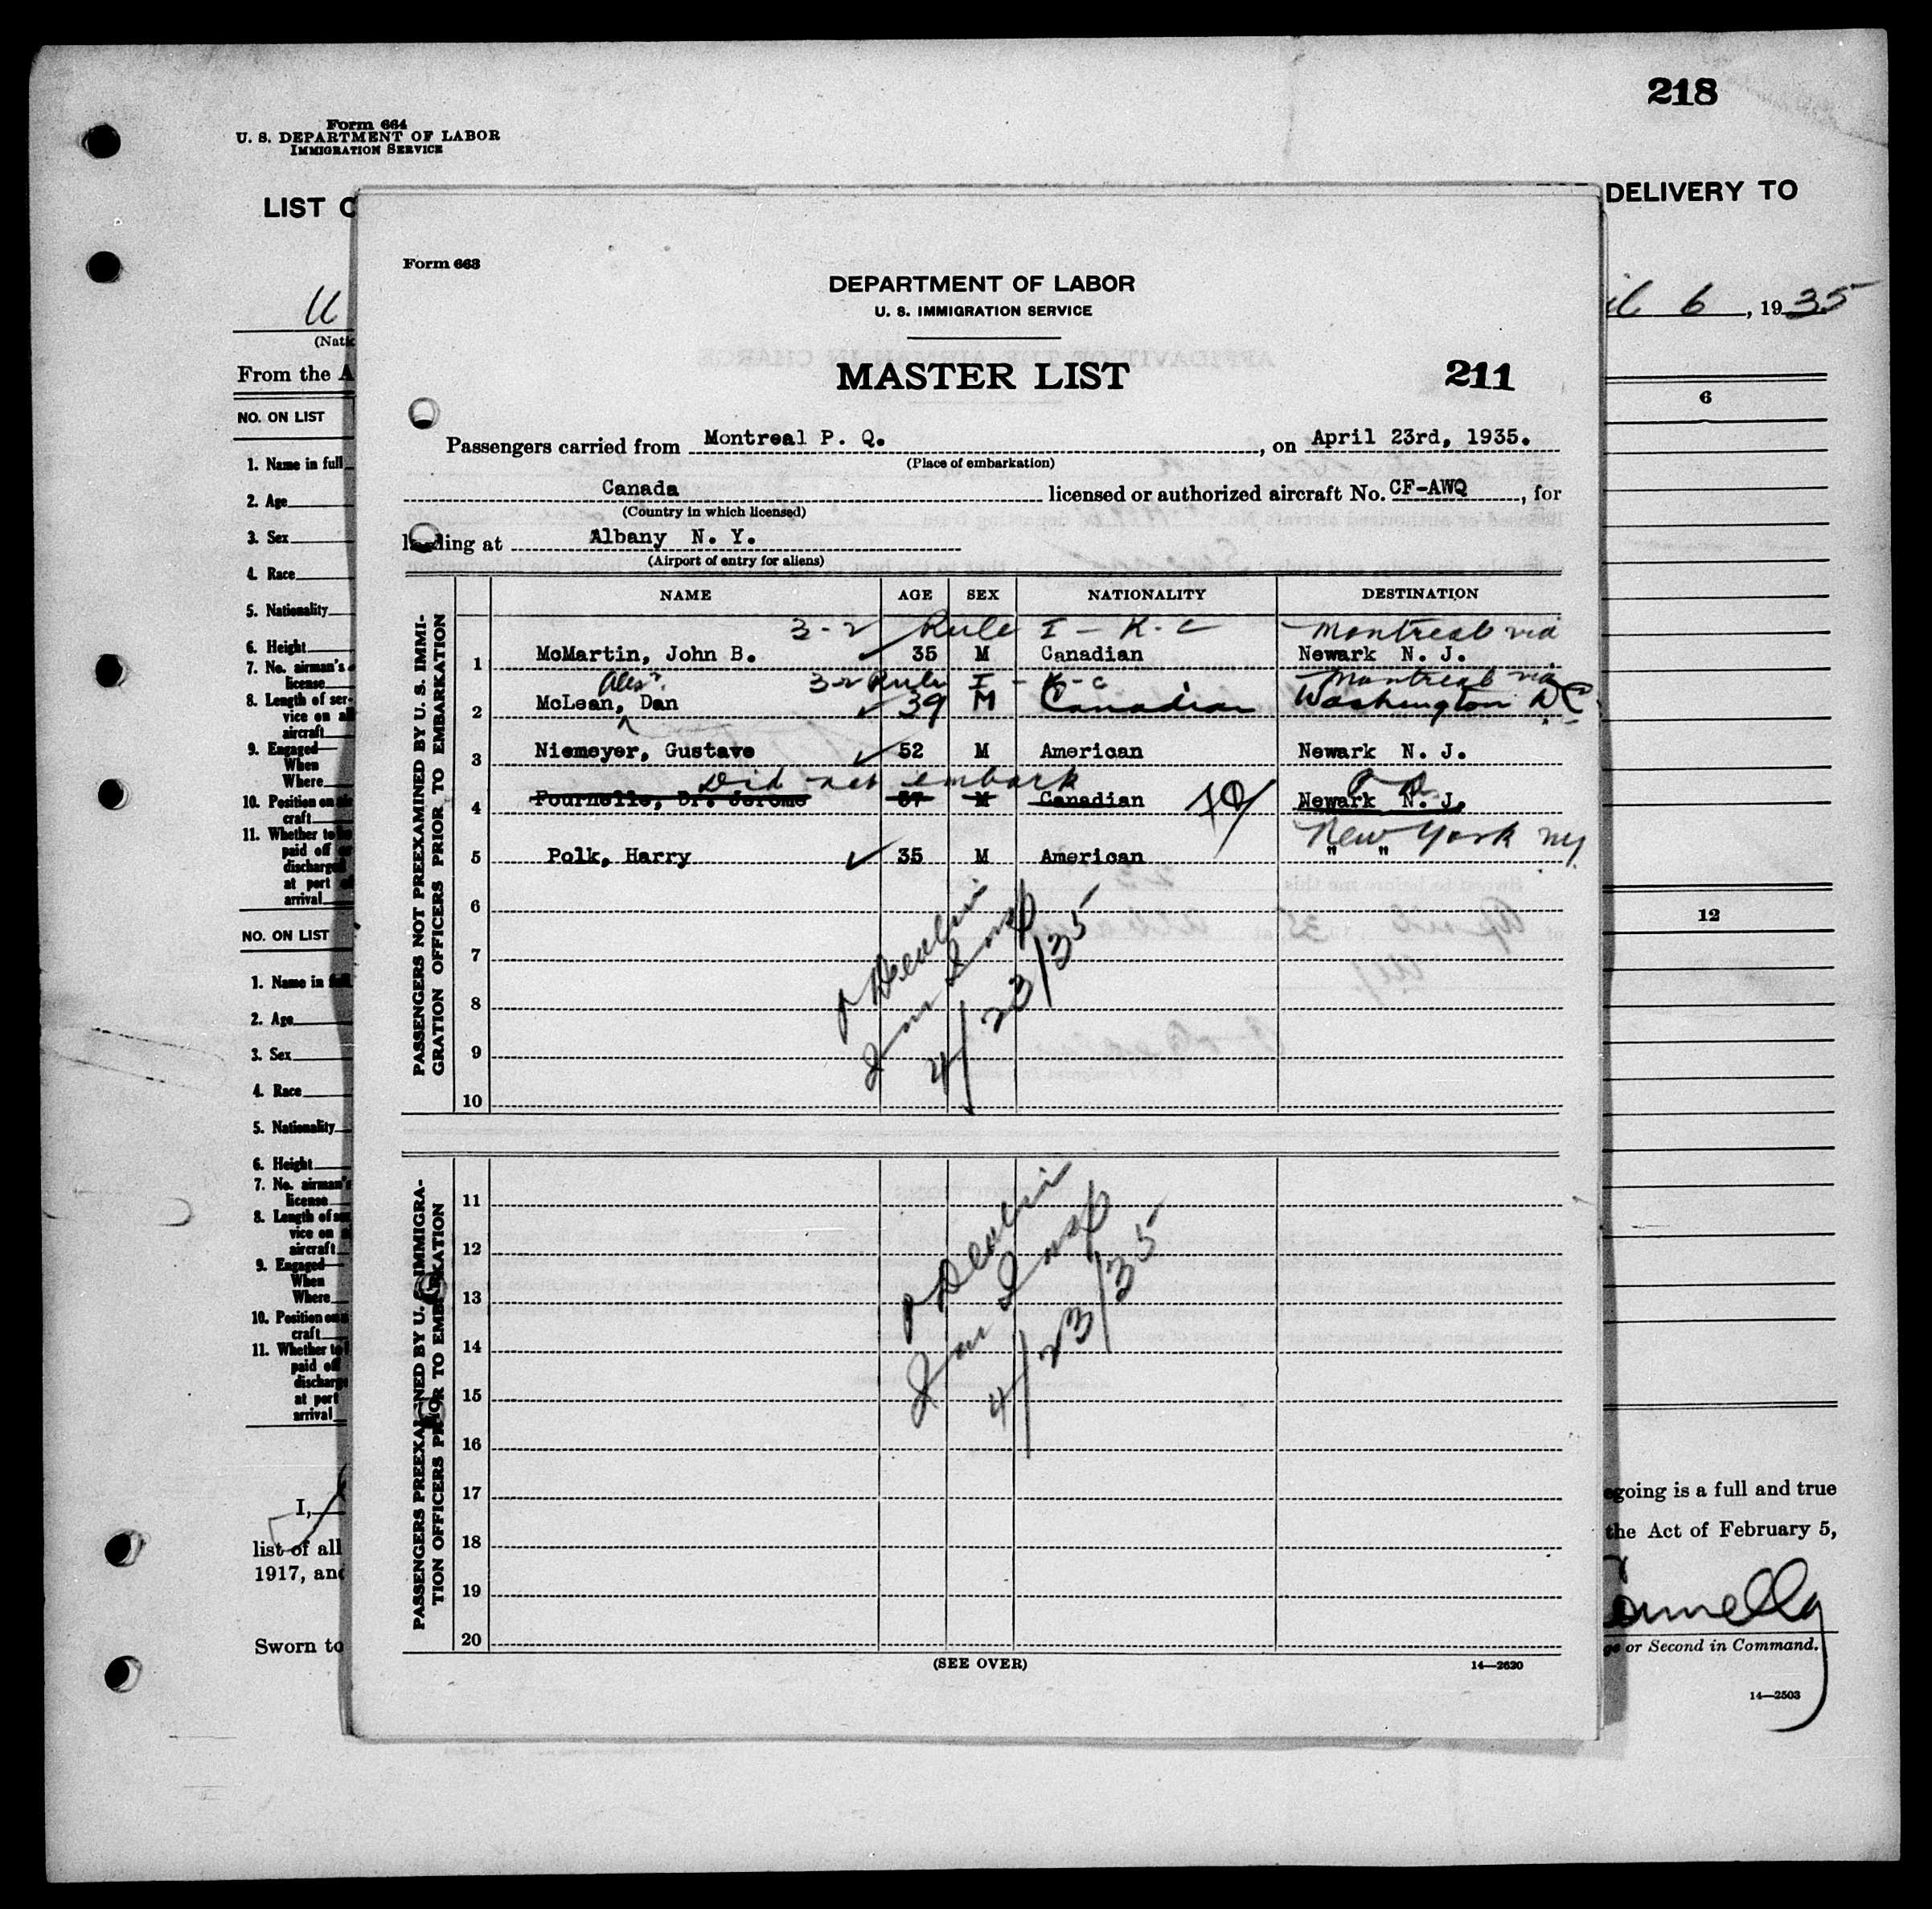 218
Form 664
U. S. DEPARTMENT OF LABOR
IMMIGRATION SERVICE
LIST
DELIVERY TO
6, 1935
From the A
NO. ON LIST
6
1. Name in full
2. Age
3. Sex
4. Race
5. Nationality
6. Height
7. No. airman's
license
8. Length of ser-
vice on
aircraft
9. Engaged—
When
Where
10. Position on
craft
11. Whether to
paid off
discharged
at port
arrival
NO. ON LIST
12
1. Name in
2. Age
3. Sex
4. Race
5. Nationality
6. Height
7. No. airman's
license
8. Length of
vice on
aircraft
9. Engaged—
When
Where
10. Position on
craft
11. Whether to
paid off
discharge
at port
arrival
I,
going is a full and true
list of all
the Act of February 5,
1917, and
Sworn to
or Second in Command.
14—2503
Form 663
DEPARTMENT OF LABOR
U. S. IMMIGRATION SERVICE
MASTER LIST
211
Passengers carried from Montreal P. Q., on April 23rd, 1935.
(Place of embarkation)
Canada licensed or authorized aircraft No. CF-AWQ, for
(Country in which licensed)
landing at Albany N. Y.
(Airport of entry for aliens)
PASSENGERS NOT PREEXAMINED BY U. S. IMMI-
GRATION OFFICERS PRIOR TO EMBARKATION
NAME AGE SEX NATIONALITY DESTINATION
3-2 Rule I - K-C Montreal via
1 McMartin, John B. 35 M Canadian Newark N. J.
Alex. 3-2 Rule I - K-C Montreal via
2 McLean, Dan 39 M Canadian Washington DC
3 Niemeyer, Gustave 52 M American Newark N. J.
Did not embark
4 Fournelle, Dr. Jerome 37 M Canadian Newark N. J.
New York NY
5 Polk, Harry 35 M American " "
6
7
8
9
10
Imm Insp
4/23/35
PASSENGERS PREEXAMINED BY U. S. IMMIGRA-
TION OFFICERS PRIOR TO EMBARKATION
11
12
13
14
15
16
17
18
19
20
Imm Insp
4/23/35
(SEE OVER)
14—2620